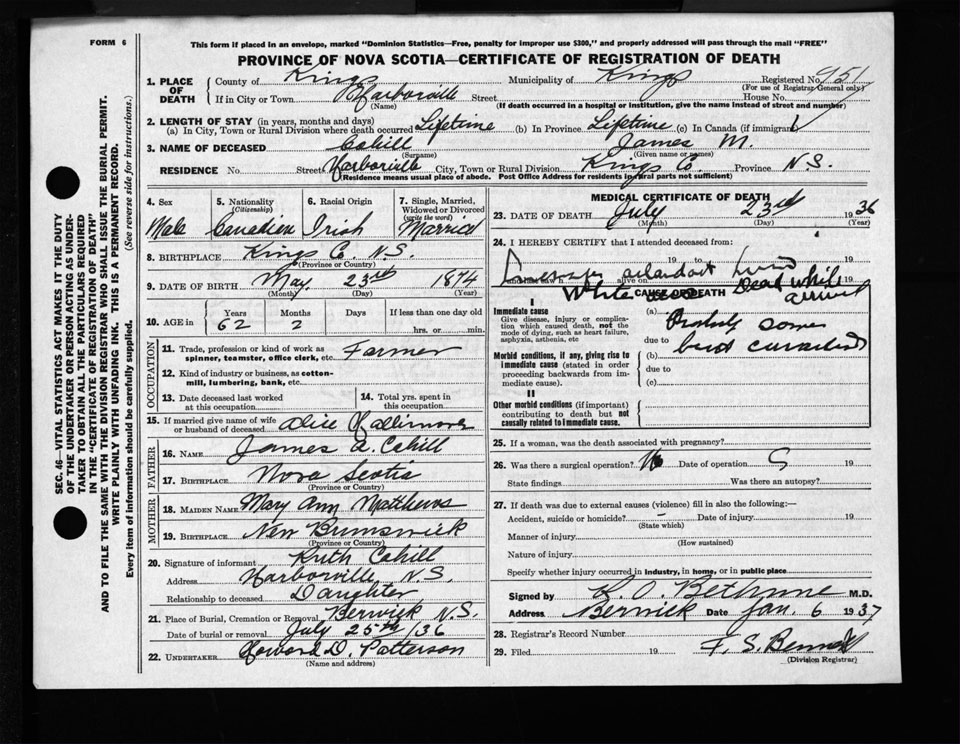 FORM 6
This form if placed in an envelope, marked "Dominion Statistics—Free, penalty for improper use $300," and properly addressed will pass through the mail "FREE"
PROVINCE OF NOVA SCOTIA—CERTIFICATE OF REGISTRATION OF DEATH
1. PLACE OF DEATH County of Kings Municipality of Kings Registered No. 951
(For use of Registrar General only)
If in City or Town Harborville Street House No.
(Name) (If death occurred in a hospital or institution, give the name instead of street and number)
2. LENGTH OF STAY (in years, months and days)
(a) In City, Town or Rural Division where death occurred Lifetime (b) In Province Lifetime (c) In Canada (if immigrant)
3. NAME OF DECEASED Cahill James M.
(Surname) (Given name or names)
RESIDENCE No. Street Harborville City, Town or Rural Division Kings Co. Province N.S.
(Residence means usual place of abode. Post Office Address for residents in rural parts not sufficient)
4. Sex 5. Nationality (Citizenship) 6. Racial Origin 7. Single, Married, Widowed or Divorced (write the word)
Male Canadian Irish Married
8. BIRTHPLACE Kings Co. N.S.
(Province or Country)
9. DATE OF BIRTH May 23rd 1874
(Month) (Day) (Year)
10. AGE in Years Months Days If less than one day old
62 2 hrs. or min.
OCCUPATION
11. Trade, profession or kind of work as spinner, teamster, office clerk, etc. Farmer
12. Kind of industry or business, as cotton-mill, lumbering, bank, etc.
13. Date deceased last worked at this occupation 14. Total yrs. spent in this occupation
15. If married give name of wife or husband of deceased Alice
FATHER
16. NAME James A. Cahill
17. BIRTHPLACE Nova Scotia
(Province or Country)
MOTHER
18. MAIDEN NAME Mary Ann Matthews
19. BIRTHPLACE New Brunswick
(Province or Country)
20. Signature of informant Ruth Cahill
Address Harborville, N.S.
Relationship to deceased Daughter
21. Place of Burial, Cremation or Removal Berwick N.S.
Date of burial or removal July 25th/36
22. UNDERTAKER Howard D. Patterson
(Name and address)
MEDICAL CERTIFICATE OF DEATH
23. DATE OF DEATH July 23rd 1936
(Month) (Day) (Year)
24. I HEREBY CERTIFY that I attended deceased from:
19 to 19
alive on 19
CAUSE OF DEATH
White Dead while
I
Immediate cause (a)
Give disease, injury or complication which caused death, not the mode of dying, such as heart failure, asphyxia, asthenia, etc
Probably some
due to
Morbid conditions, if any, giving rise to immediate cause (stated in order proceeding backwards from immediate cause).
(b)
due to
(c)
II
Other morbid conditions (if important) contributing to death but not causally related to immediate cause.
25. If a woman, was the death associated with pregnancy?
26. Was there a surgical operation? No Date of operation 19
State findings Was there an autopsy?
27. If death was due to external causes (violence) fill in also the following:—
Accident, suicide or homicide? – Date of injury 19
(State which)
Manner of injury
(How sustained)
Nature of injury
Specify whether injury occurred in industry, in home, or in public place
Signed by M.D.
Address Berwick Date Jan. 6 1937
28. Registrar's Record Number
29. Filed 19 F. S. Bennett
(Division Registrar)
SEC. 46—VITAL STATISTICS ACT MAKES IT THE DUTY
OF THE UNDERTAKER OR PERSON ACTING AS UNDER-
TAKER TO OBTAIN ALL THE PARTICULARS REQUIRED
IN THE "CERTIFICATE OF REGISTRATION OF DEATH"
AND TO FILE THE SAME WITH THE DIVISION REGISTRAR WHO SHALL ISSUE THE BURIAL PERMIT.
WRITE PLAINLY WITH UNFADING INK. THIS IS A PERMANENT RECORD.
Every item of information should be carefully supplied. (See reverse side for instructions.)